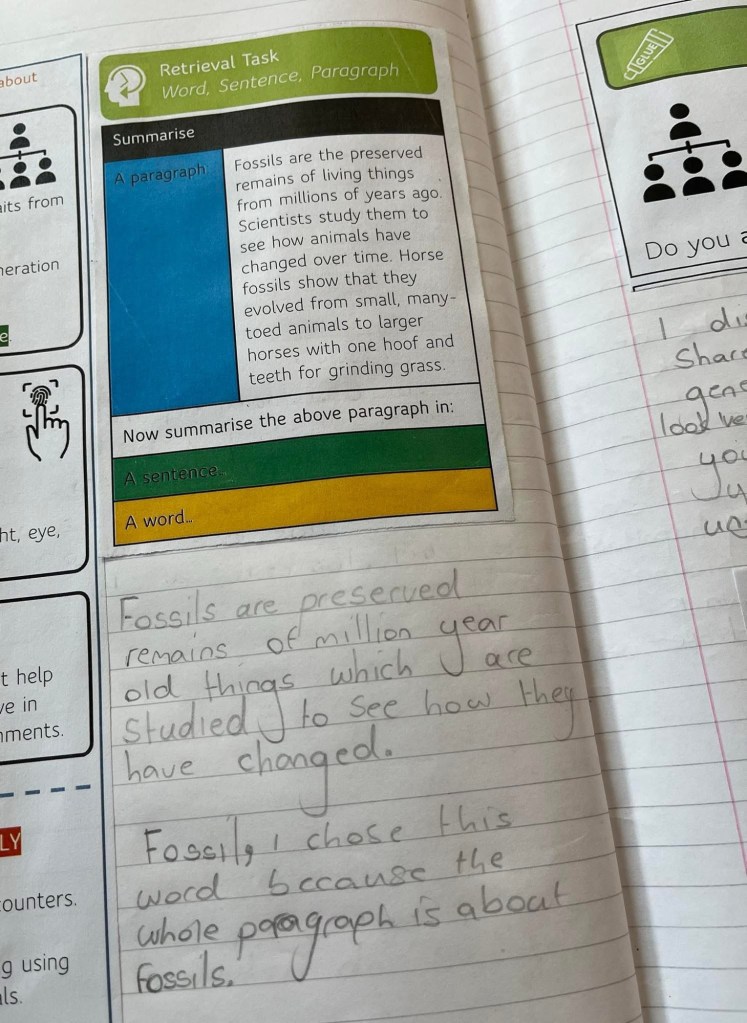 about
aits from
neration
e.
ht, eye,
t help
ve in
nments.
LY
ounters.
g using
ls.
Retrieval Task
Word, Sentence, Paragraph
Summarise
A paragraph
Fossils are the preserved
remains of living things
from millions of years ago.
Scientists study them to
see how animals have
changed over time. Horse
fossils show that they
evolved from small, many-
toed animals to larger
horses with one hoof and
teeth for grinding grass.
Now summarise the above paragraph in:
A sentence...
A word...
Fossils are preserved
remains of million year
old things which are
studied to see how they
have changed.
Fossil, I chose this
word because the
whole paragraph is about
fossils.
GLUE
Do you a
I dis
Share
gene
look ve
you